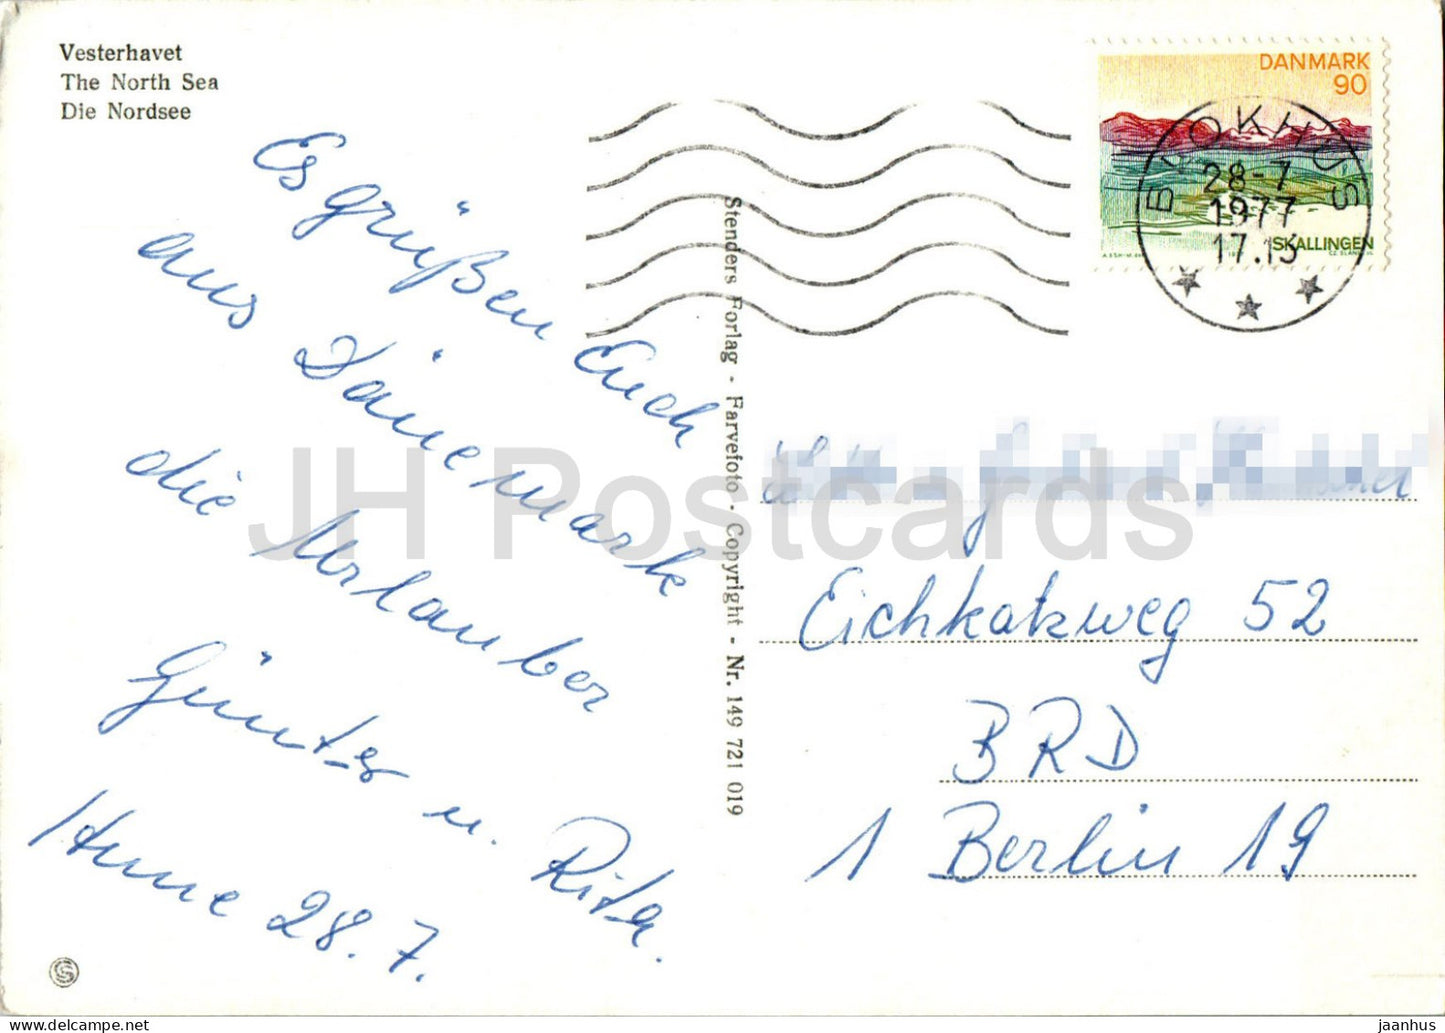 Vesterhavet
The North Sea
Die Nordsee
Es grüßen Euch
aus Dänemark
die Urlauber
Günter u. Rita.
Hune 28.7.
Stenders Forlag - Farvefoto - Copyright - Nr. 149 721 019
DANMARK
90
SKALLINGEN
BLOKHUS
28-7
1977
17.15
Eichkatzweg 52
BRD
1 Berlin 19
JH Postcards
jaanhus